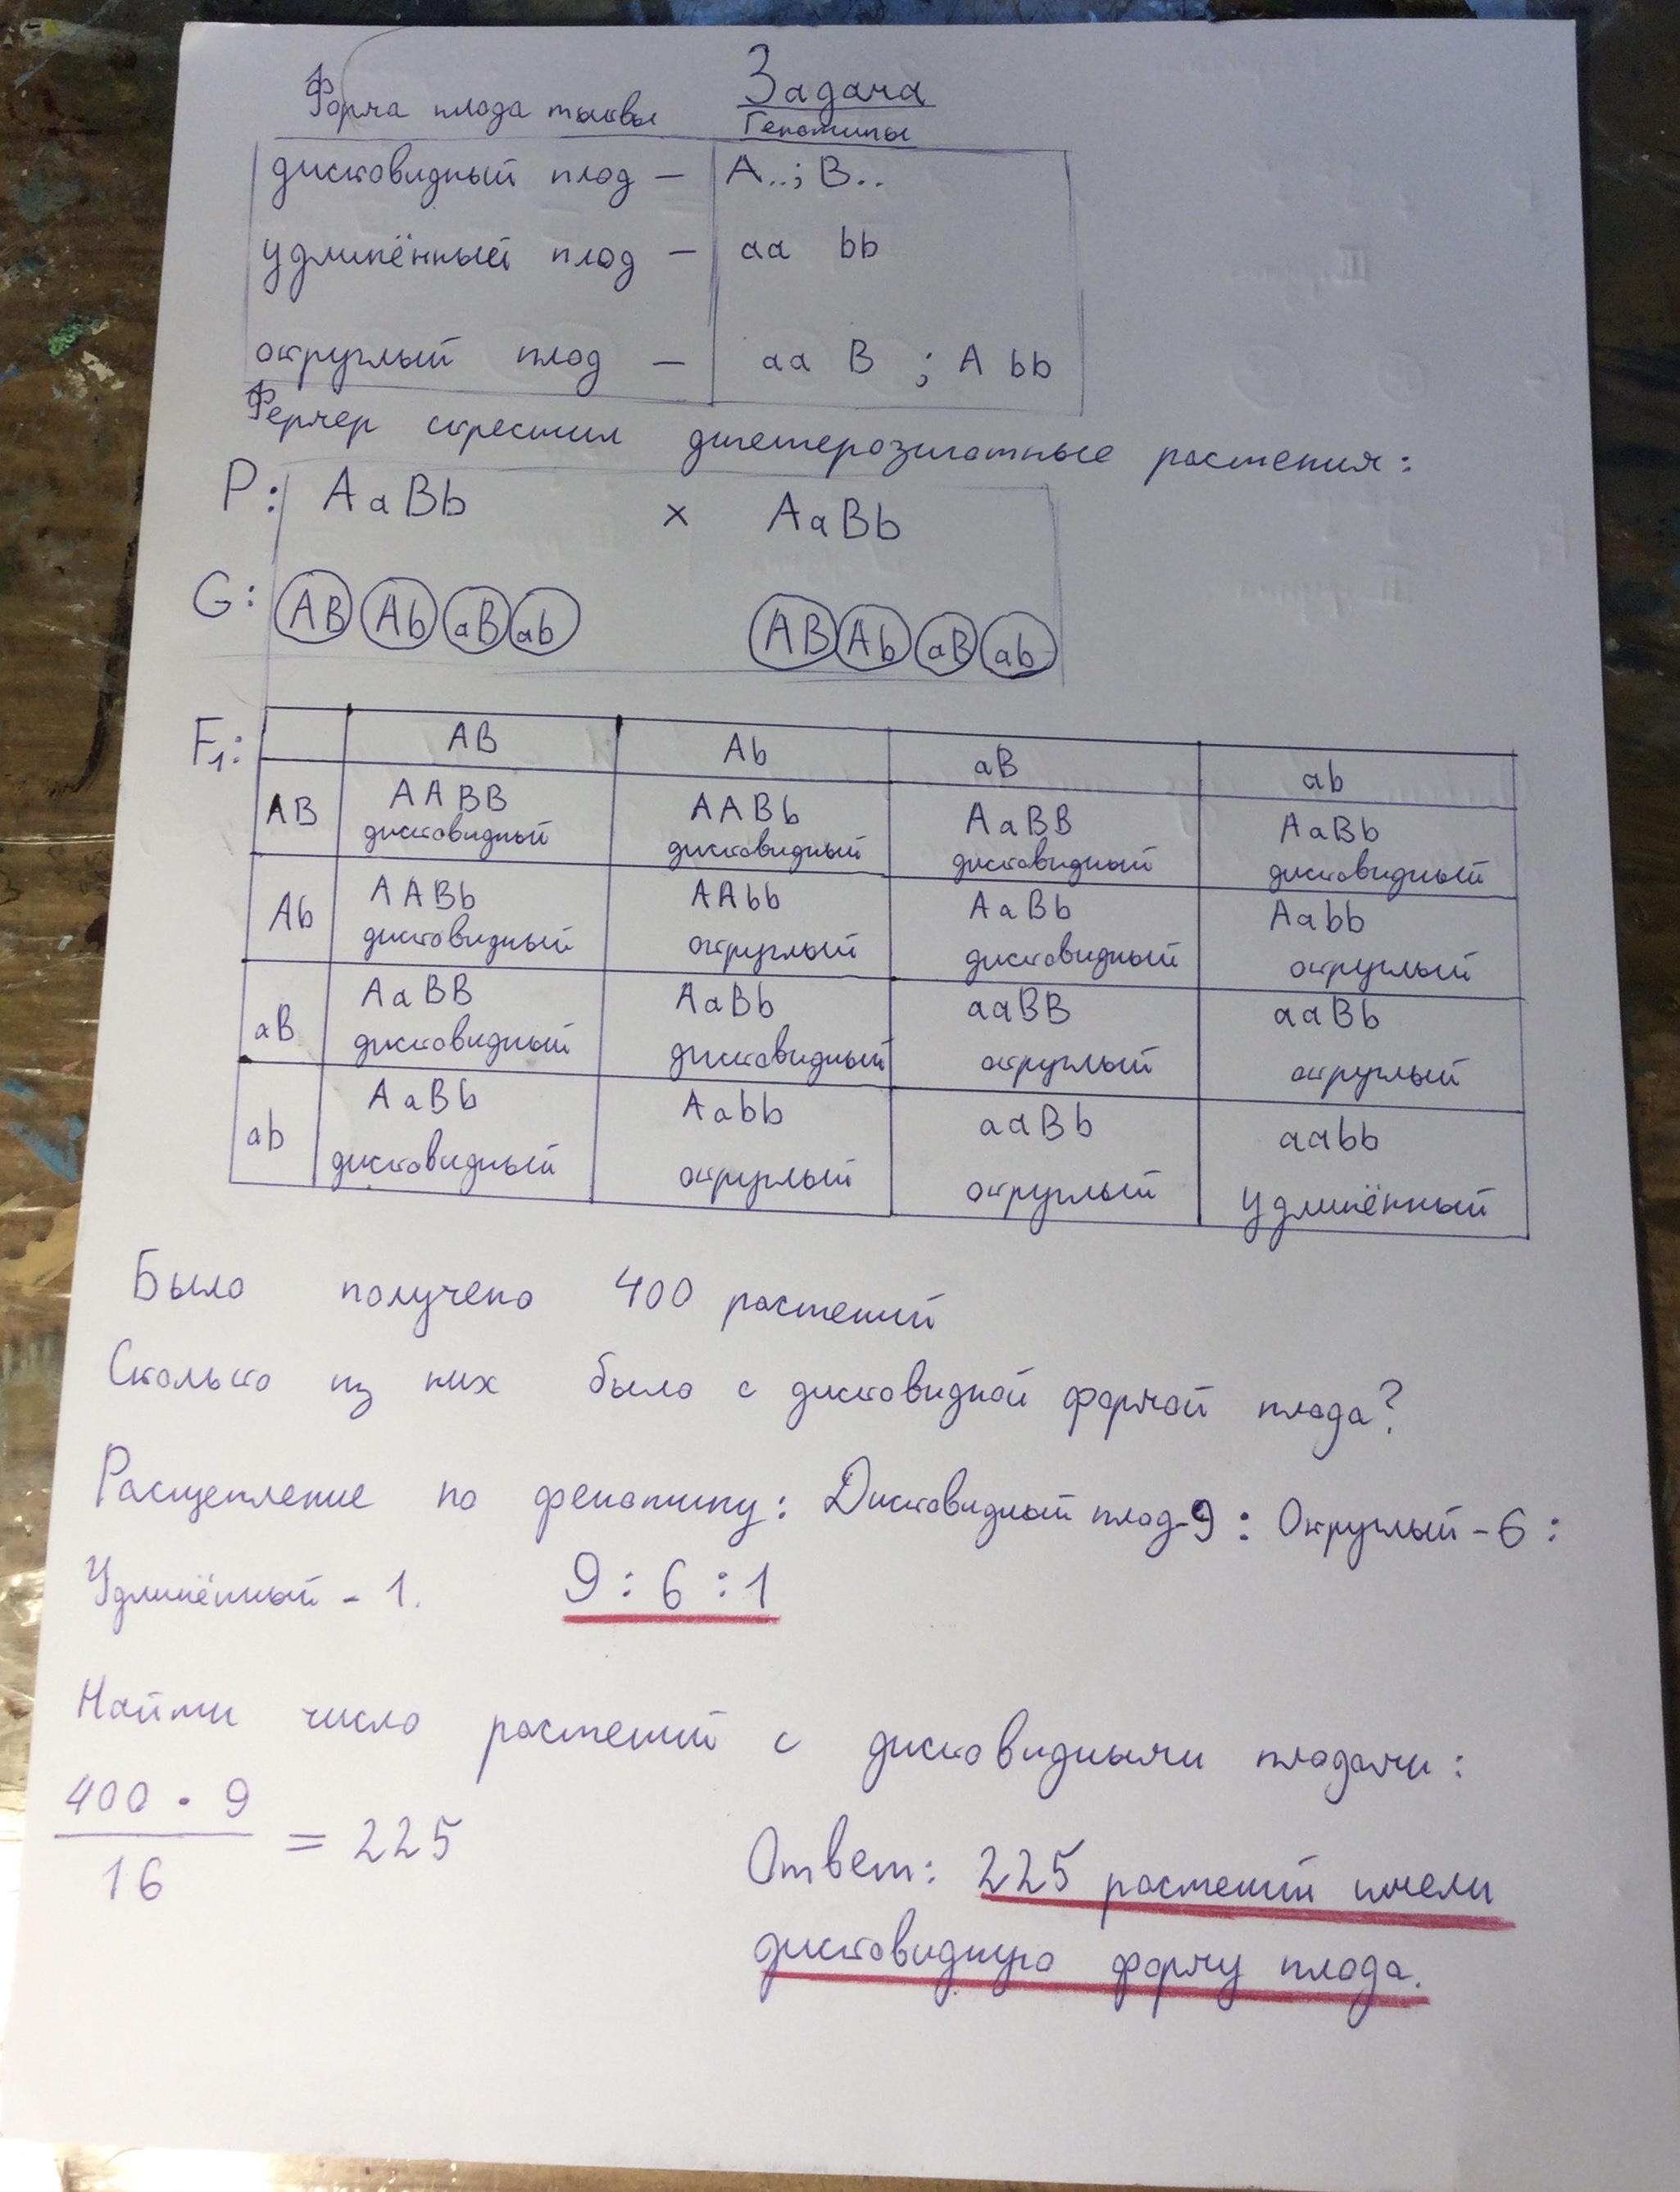 Задача
Форма плода тыквы Генотипы
дисковидный плод – А..; В..
удлинённый плод – аа bb
округлый плод – аа В ; А bb
Фермер скрестил дигетерозиготные растения:
P: AaBb x AaBb
G: AB Ab aB ab AB Ab aB ab
F1: AB Ab aB ab
AB AABB AABb AaBB AaBb
дисковидный дисковидный дисковидный дисковидный
Ab AABb AAbb AaBb Aabb
дисковидный округлый дисковидный округлый
aB AaBB AaBb aaBB aaBb
дисковидный дисковидный округлый округлый
ab AaBb Aabb aaBb aabb
дисковидный округлый округлый удлинённый
Было получено 400 растений
Сколько из них было с дисковидной формой плода?
Расщепление по фенотипу: Дисковидный плод-9 : Округлый-6 :
Удлинённый - 1. 9 : 6 : 1
Найти число растений с дисковидными плодами:
400 · 9
16
= 225
Ответ: 225 растений имели
дисковидную форму плода.